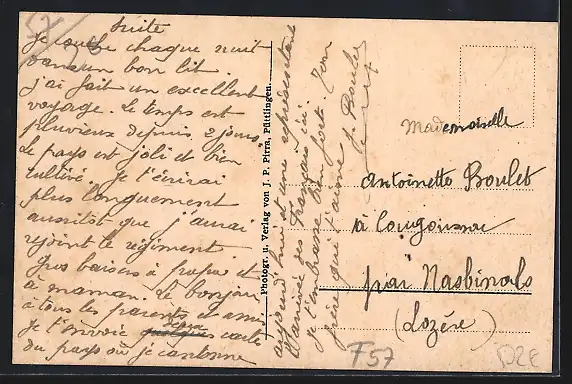 57
suite
Je couche chaque nuit
dans un bon lit.
j'ai fait un excellent
voyage. Le temps est
pluvieux depuis 2 jours
Le pays est joli et bien
cultivé. Je t'écrirai
plus longuement
aussitôt que j'aurai
rejoint le régiment.
Gros baisers à papa et
à maman. Le bonjour
à tous les parents et amis
Je t'envoie deux cartes
du pays où je cantonne
aujourd'hui et une représentant
l'arrivée des français ici.
Je t'embrasse bien fort. Ton
frère qui t'aime J. Boulet
Photogr. u. Verlag von J. P. Pirra, Püttlingen.
Mademoiselle
Antoinette Boulet
à
par Nasbinals
(Lozère)
F57